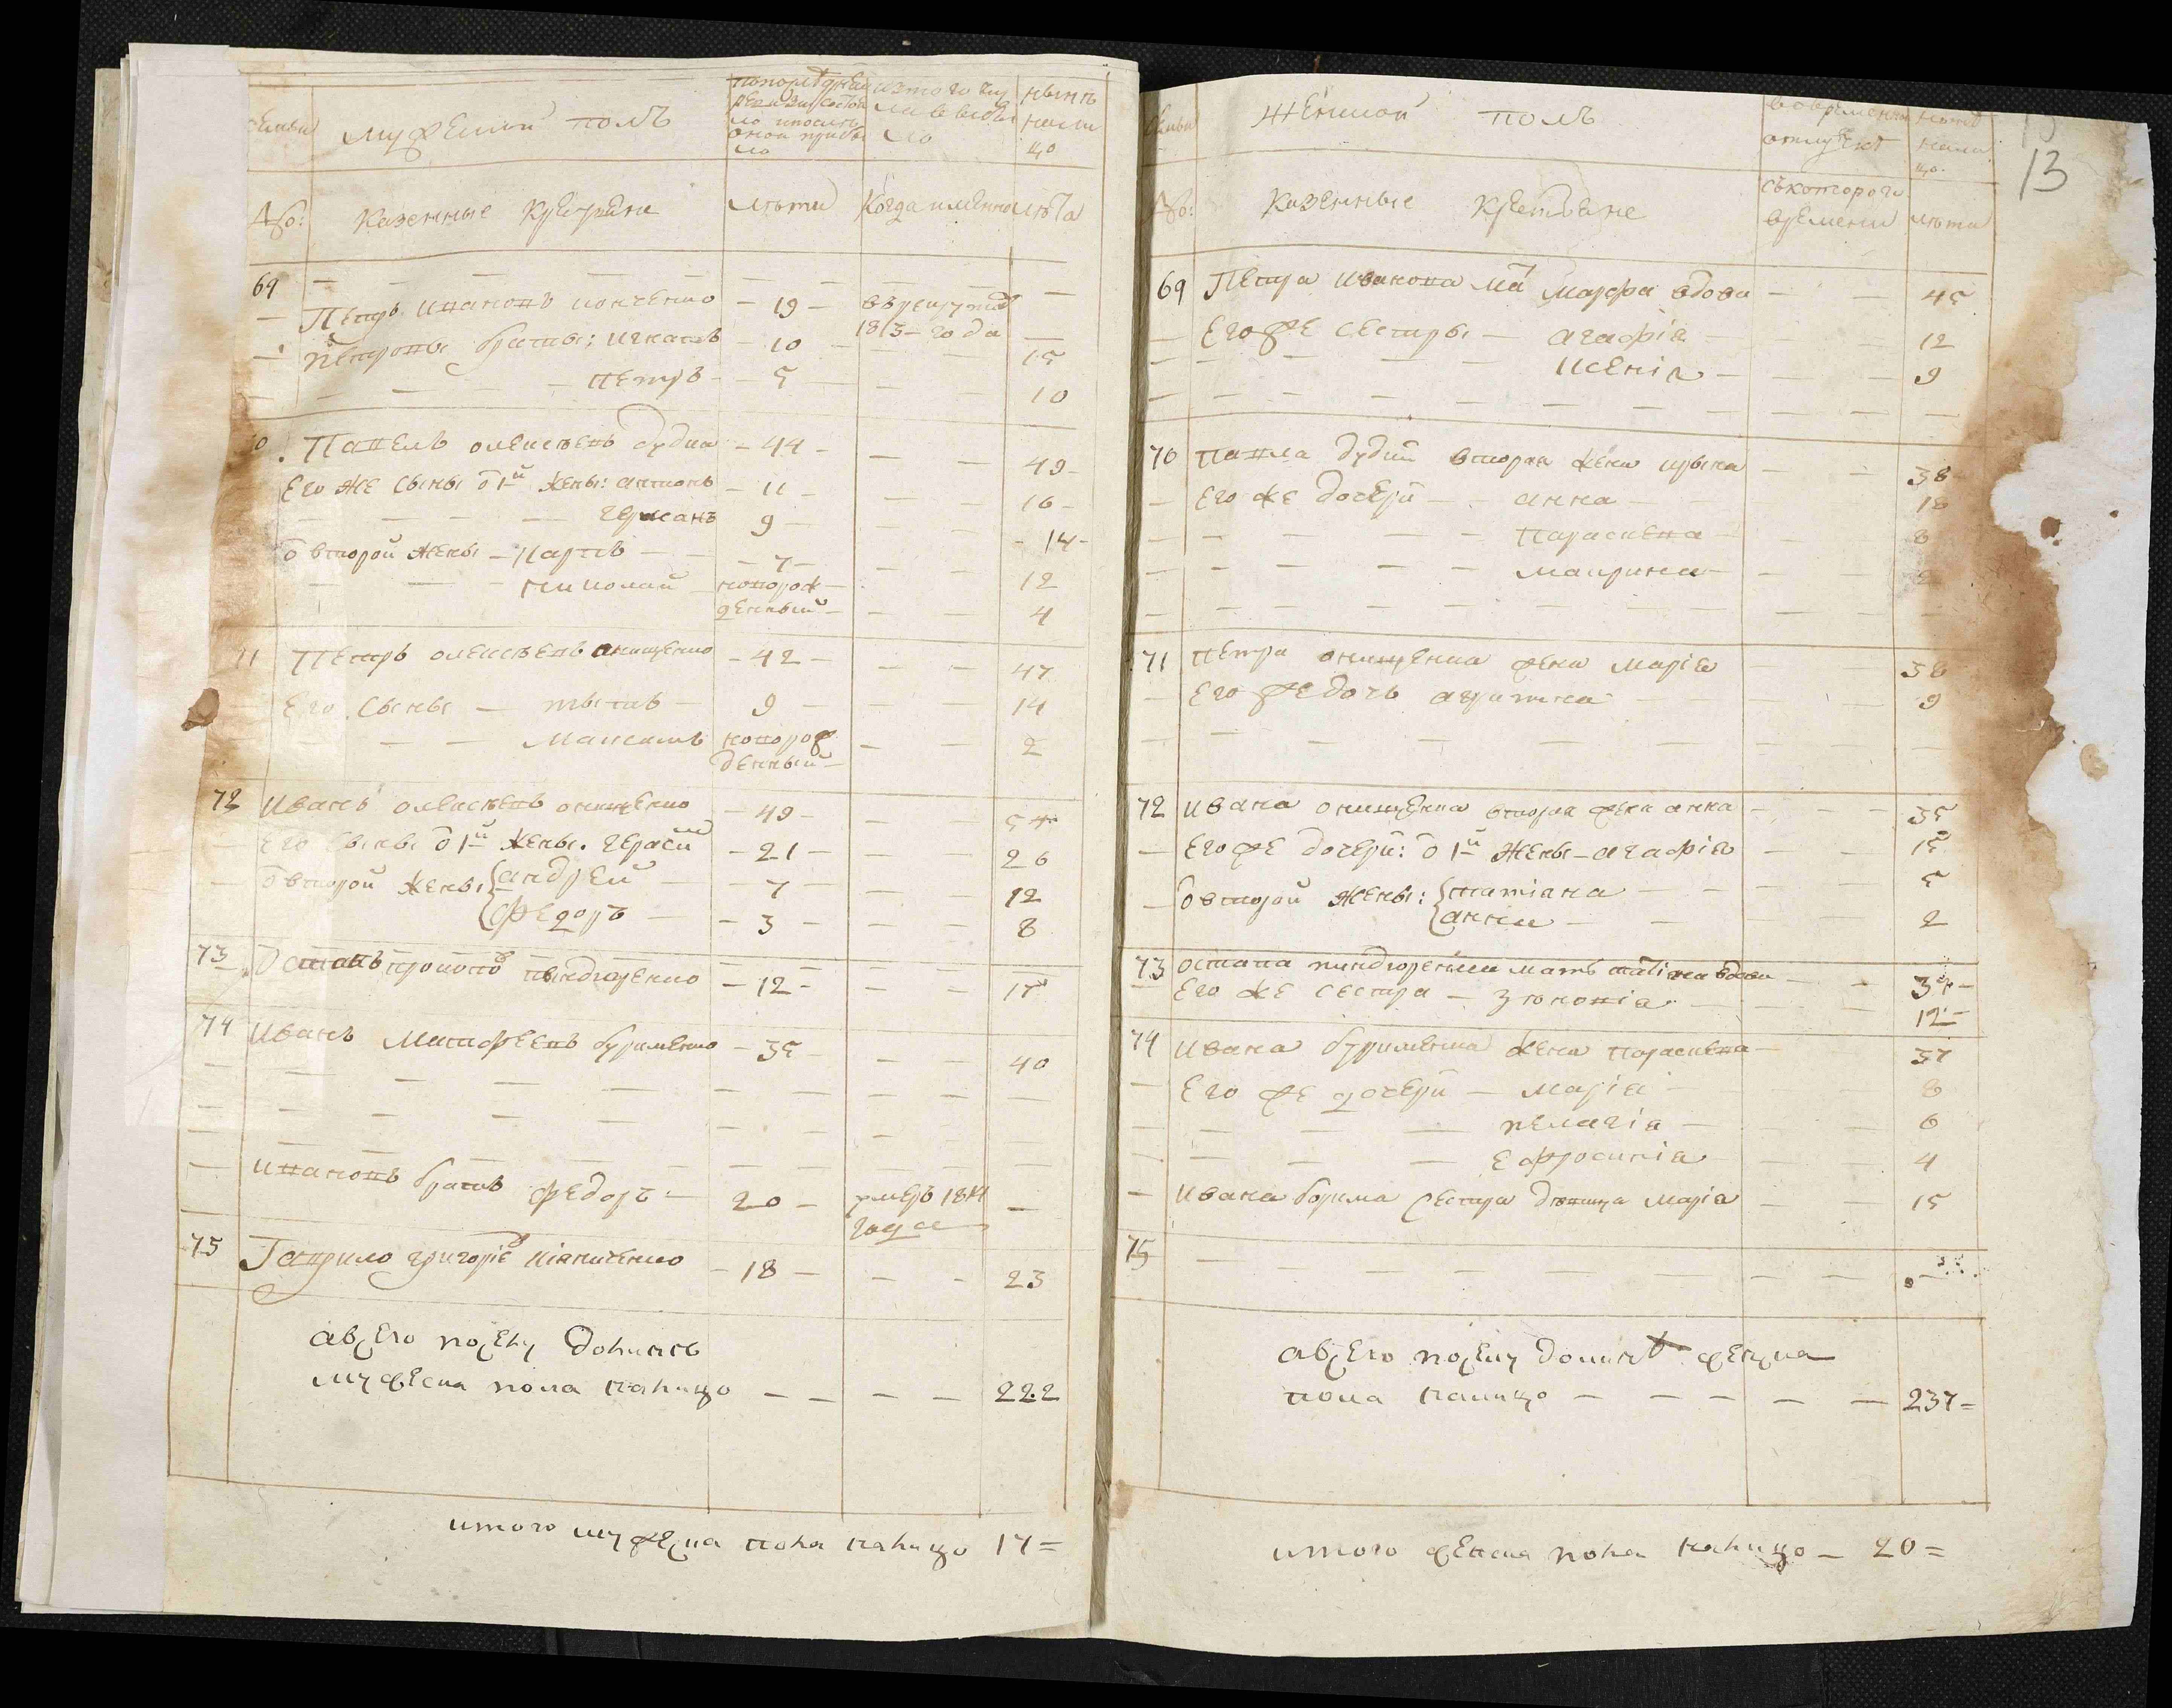 семьи
мужеский полъ
попослѣдней
ревизіи состоя
ло и после
оной прибы
ло
изтого чи
сла выбы
ло
нынѣ
нали
цо
№:
Казенные Крестьяне
лѣта
Когда именно
лѣта
69
Петръ Ивановъ
- 19 -
в рекруты
1813 - года
Петровы братья: Игнатъ - 10 - 15
Петръ - 5 - 10
Павелъ Олексѣевъ Дудка - 44 - 49 -
Его же сыны о 1й жены: Антонъ - 11 - 16 -
Герасанъ 9 - - 14 -
о второй жены - Карпъ - 7 - 12
Николай новорож
денный - 4
Петръ Олексѣевъ Онищенко - 42 - 47
Его сыны - 9 - 14
Максимъ новорож 2
денный -
72 Иванъ Олексѣевъ Онищенко - 49 - 54
Его сыны о 1й жены. Герасим - 21 - 26
о второй жены { Андрей - 7 - 12
{ Федоръ - 3 - 8
73 Остапъ Прокопов - 12 - 17
74 Иванъ Матфеевъ Бурименко - 35 - 40
Ивановъ братъ Федоръ - 20 - умеръ 1814 -
года
75 Гаврило Григоріев - 18 - 23
а всего по сему
мужеска пола налицо - - - - 222
итого мужеска пола налицо 17 =
13
семьи
женской полъ
во временной
отлучке
нынѣ
нали
цо.
№:
Казенные Крестьяне
съ котораго
времени
лѣта
69 Петра Иванова мат Марфа вдова - 45
Его же сестры - Агафія 12
Ксенія - 9
70 Павла Дудки вторая жена Ирына 38
Его же дочери - Анна - 18
Параскева 8
Маврина
71 Петра Онищенка жена Марія 38
Его же дочь 9
72 Ивана Онищенка вторая жена Анна 35
Его же дочери: о 1й жены - Агафія 15
о второй жены: { Татіана 5
{ Анна 2
73 Остапа мать Татіана вдова - 37 -
Его же сестра - 12 -
74 Ивана Бурименка жена Параскева - 37
Его же дочери - Марія 8
Пелагія - 6
Ефросинія 4
Ивана сестра дѣвица Марія 15
75
а всего по сему женска
пола налицо - - - - - - 237 =
итого женска пола налицо - 20 =